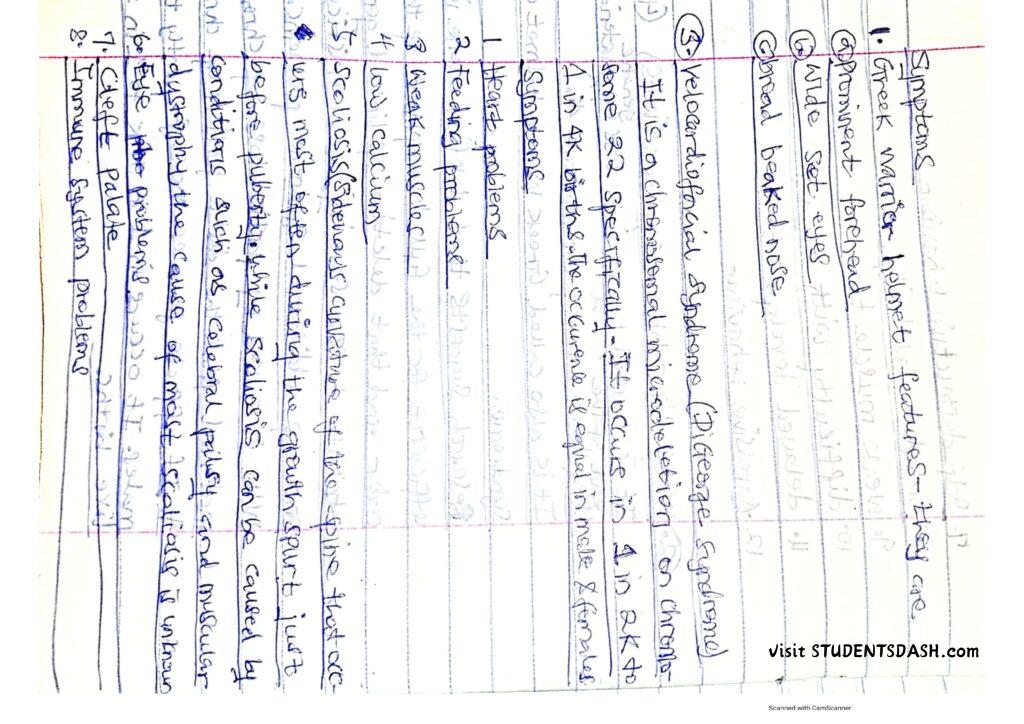 Symptoms
1. Greek warrior helmet features - they are
(a) prominent forehead
(b) Wide set eyes
(c) broad beaked nose
(3.) Velocardiofacial syndrome (DiGeorge syndrome)
It is a chromosomal microdeletion on chromo-
some 22 specifically. It occurs in 1 in 2K to
1 in 4K births. The occurence is equal in male & females
Symptoms
1. Heart problems
2. Feeding problems
3. Weak muscles
4. Low calcium
5. Scoliosis (sideways curvature of the spine that occ-
urs most often during the growth spurt just
before puberty. while scoliosis can be caused by
conditions such as celebral palsy and muscular
dystrophy, the cause of most scoliosis is unknown
6. Eye problems
7. Cleft palate
8. Immune system problems
visit STUDENTSDASH.com
Scanned with CamScanner